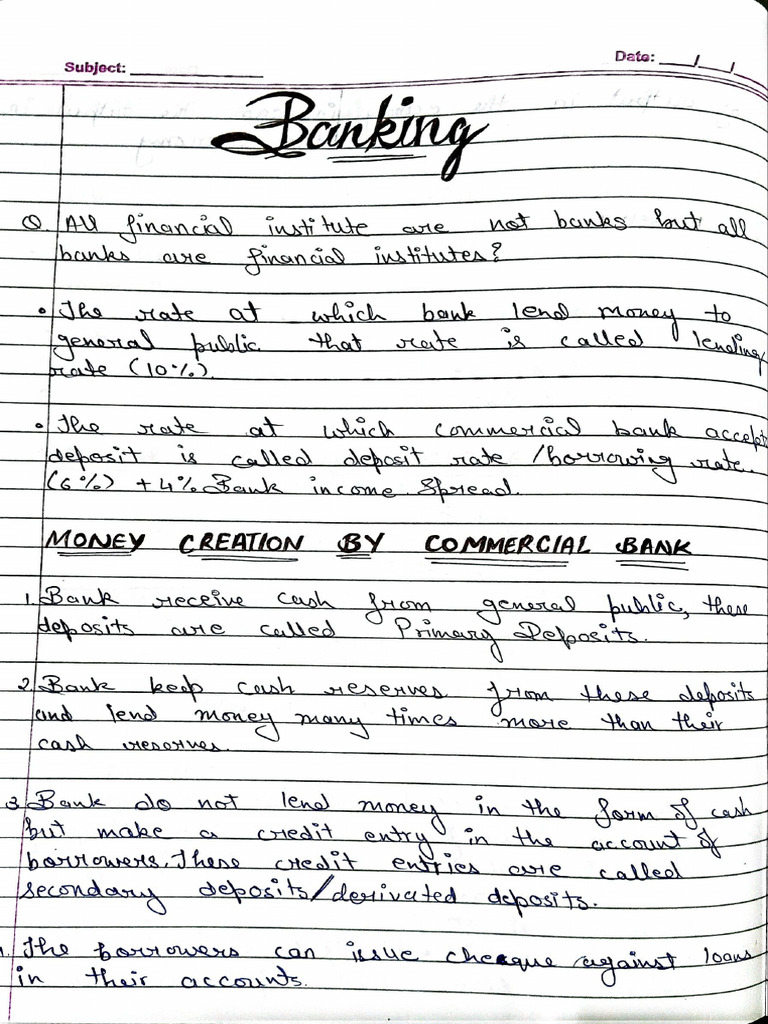 Subject: Date: / /
Banking
Q. All financial institute are not banks but all
banks are financial institutes?
• The rate at which bank lend money to
general public that rate is called lending
rate (10%).
• The rate at which commercial bank accept
deposit is called deposit rate /borrowing rate.
(6%) + 4% Bank income Spread.
MONEY CREATION BY COMMERCIAL BANK
1. Bank receive cash from general public, these
deposits are called Primary Deposits.
2. Bank keep cash reserves from these deposits
and lend money many times more than their
cash reserves.
3 Bank do not lend money in the form of cash
but make a credit entry in the account of
borrowers. These credit entries are called
secondary deposits/derivated deposits.
The borrowers can issue cheaque against loans
in their accounts.